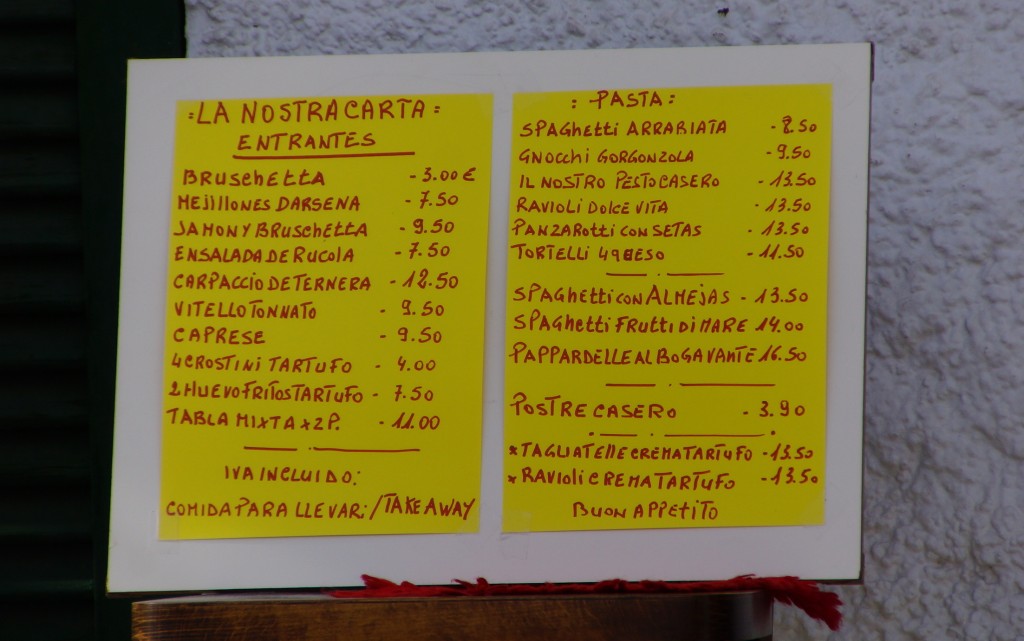 :LA NOSTRA CARTA:
ENTRANTES
BRUSCHETTA - 3.00 €
MEJILLONES DARSENA - 7.50
JAMON Y BRUSCHETTA - 9.50
ENSALADA DE RUCOLA - 7.50
CARPACCIO DE TERNERA - 12.50
VITELLO TONNATO - 9.50
CAPRESE - 9.50
4 CROSTINI TARTUFO - 4.00
2 HUEVO FRITOS TARTUFO - 7.50
TABLA MIXTA x 2 P. - 11.00
IVA INCLUIDO:
COMIDA PARA LLEVAR:/TAKE AWAY
: PASTA :
SPAGHETTI ARRABIATA - 8.50
GNOCCHI GORGONZOLA - 9.50
IL NOSTRO PESTO CASERO - 13.50
RAVIOLI DOLCE VITA - 13.50
PANZAROTTI CON SETAS - 13.50
TORTELLI 4 QBESO - 11.50
SPAGHETTI CON ALMEJAS - 13.50
SPAGHETTI FRUTTI DI MARE 14.00
PAPPARDELLE AL BOGAVANTE 16.50
POSTRE CASERO - 3.90
*TAGLIATELLE CREMA TARTUFO - 13.50
*RAVIOLI CREMA TARTUFO - 13.50
BUON APPETITO